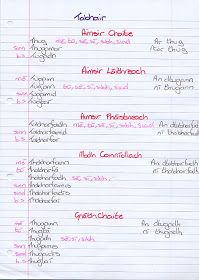 Tabhair
Aimsir Chaite
Thug mé, tú, sé, sí, sibh, siad Ar thug
sinn Thugamar Níor thug
b.s Tugadh
Aimsir Láithreach
mé Tugaim An dtugann
Tugann tú, sé, sí, sibh, siad ní thugann
sinn Tugaimid
b.s Tugtar
Aimsir Fháistineach
Tabharfaidh mé, tú, sé, sí, sibh, siad An dtabharfaidh
sinn Tabharfaimid ní thabharfaidh
b.s Tabharfar
Modh Coinníollach
mé Thabharfainn An dtabharfadh
tú Thabharfá ní thabharfadh
Thabharfadh sé, sí, sibh
sinn Thabharfaimis
siad Thabharfaidís
b.s Thabharfaí
Gnáthchaite
mé Thugainn An dtugadh
tú Thugtá ní thugadh
Thugadh sé, sí, sibh
sinn Thugaimis
siad Thugaidís
b.s Thugtaí